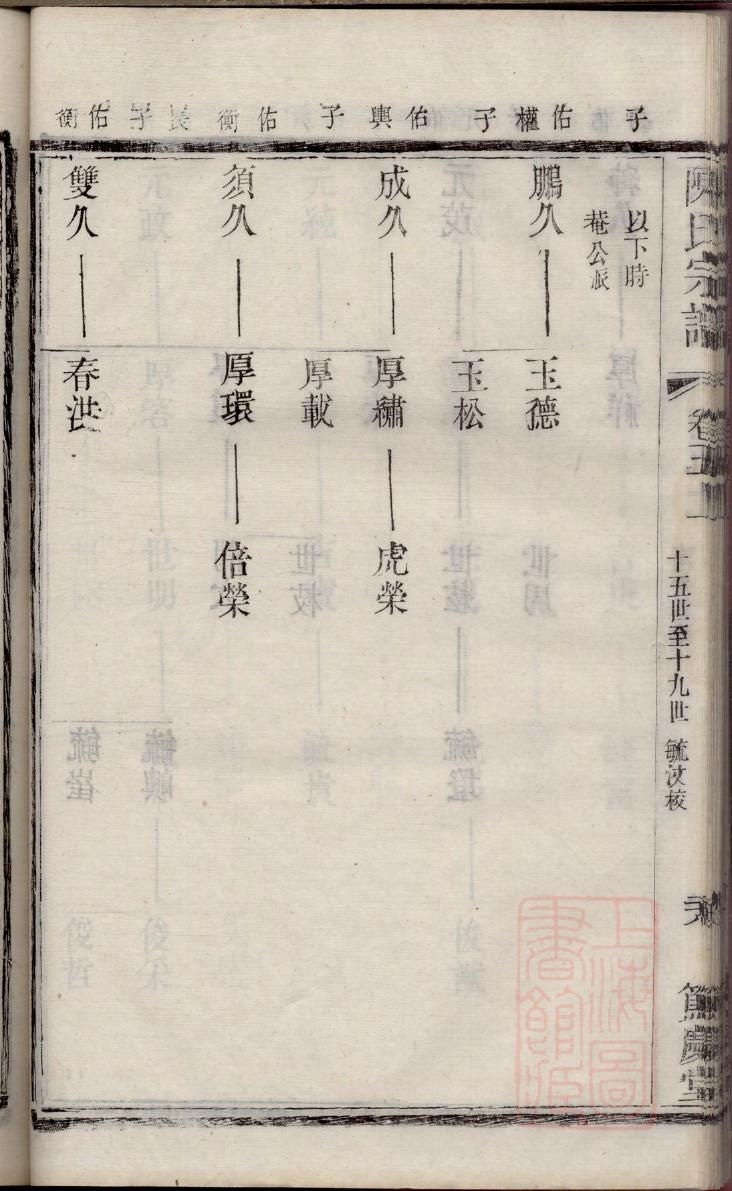 氏宗譜
卷五
十五世至十九世 毓汶校
篤慶堂
佑權子
佑興子
佑衡子
佑衡長子
以下時
菴公派
鵬久
玉德
玉松
成久
厚繡
虎榮
厚載
須久
厚環
倍榮
雙久
春洪
上海圖
書館藏